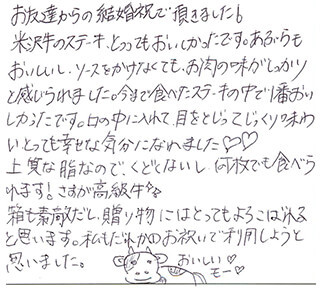 お友達からの結婚祝で頂きました!
米沢牛のステーキ、とってもおいしかったです。あぶらも
おいしいし、ソースをかけなくても、お肉の味がしっかり
と感じられました。今まで食べたステーキの中で1番おい
しかったです。口の中に入れて、目をとじてじっくり味わ
い、とっても幸せな気分になれました♡♡
上質な脂なので、くどくないし、何枚でも食べら
れます!さすが高級牛
箱も素敵だし、贈り物にはとってもよろこばれる
と思います。私もだれかのお祝いで利用しようと
思いました。
おいしい♡
モー♡